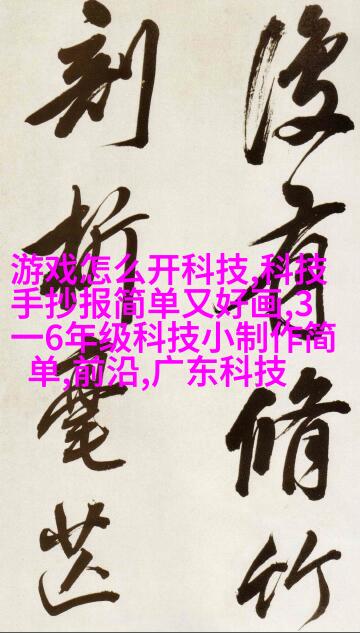 有脩竹
刻折
游戏怎么开科技,科技
手抄报简单又好画,3
一6年级科技小制作简
单,前沿,广东科技